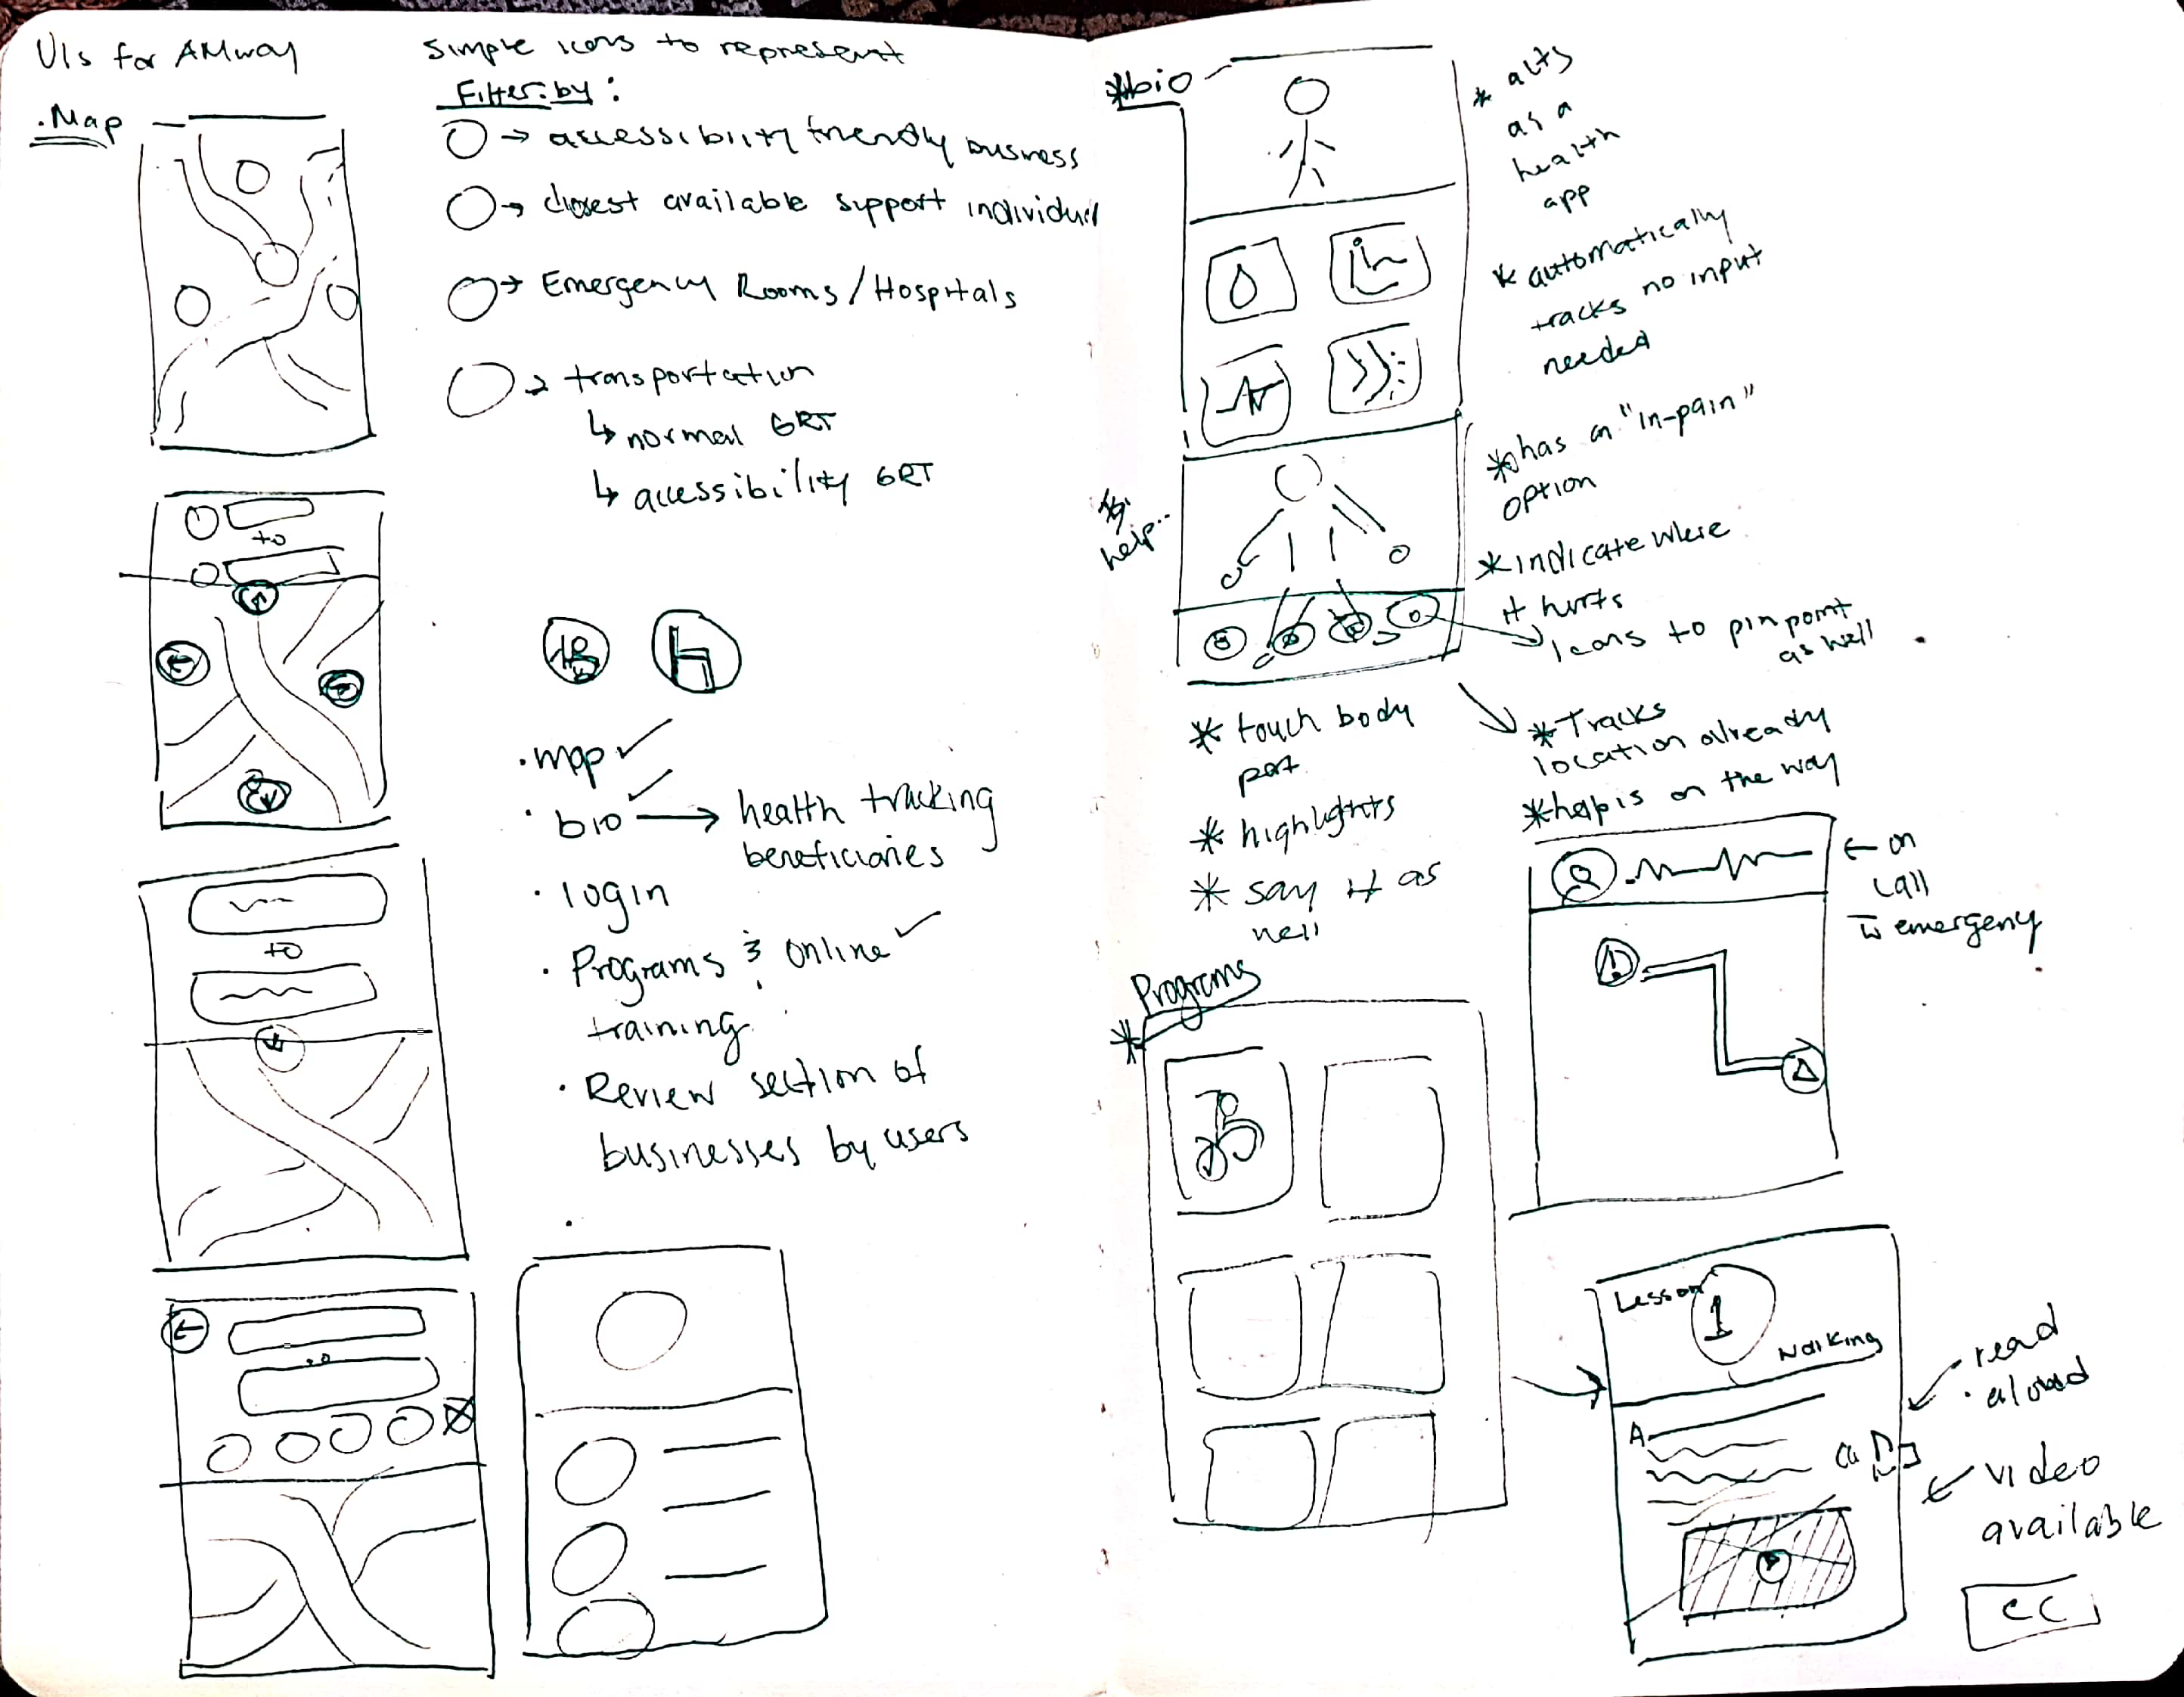 UIs for AMway
Simple icons to represent
Filter: by :
. Map
→ accessibility friendly business
→ closest available support individual
→ Emergency Rooms / Hospitals
→ transportation
↳ normal GRT
↳ accessibility GRT
to
· map ✓
· bio ✓ → health tracking
beneficiaries
· login
· Programs & online ✓
training
· Review section of
businesses by users
to
*bio
* acts
as a
health
app
* automatically
tracks no input
needed
* has an "in-pain"
option
help..
* indicate where
it hurts
Icons to pinpoint
as well
* touch body
part
* highlights
* say it as
well
* Tracks
location already
* help is on the way
← on
call
to emergency
* Programs
Lesson 1
Walking
A
← read
aloud
← video
available
CC